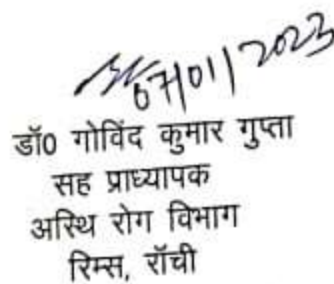 07/01/2023
डॉ0 गोविंद कुमार गुप्ता
सह प्राध्यापक
अस्थि रोग विभाग
रिम्स, रॉची